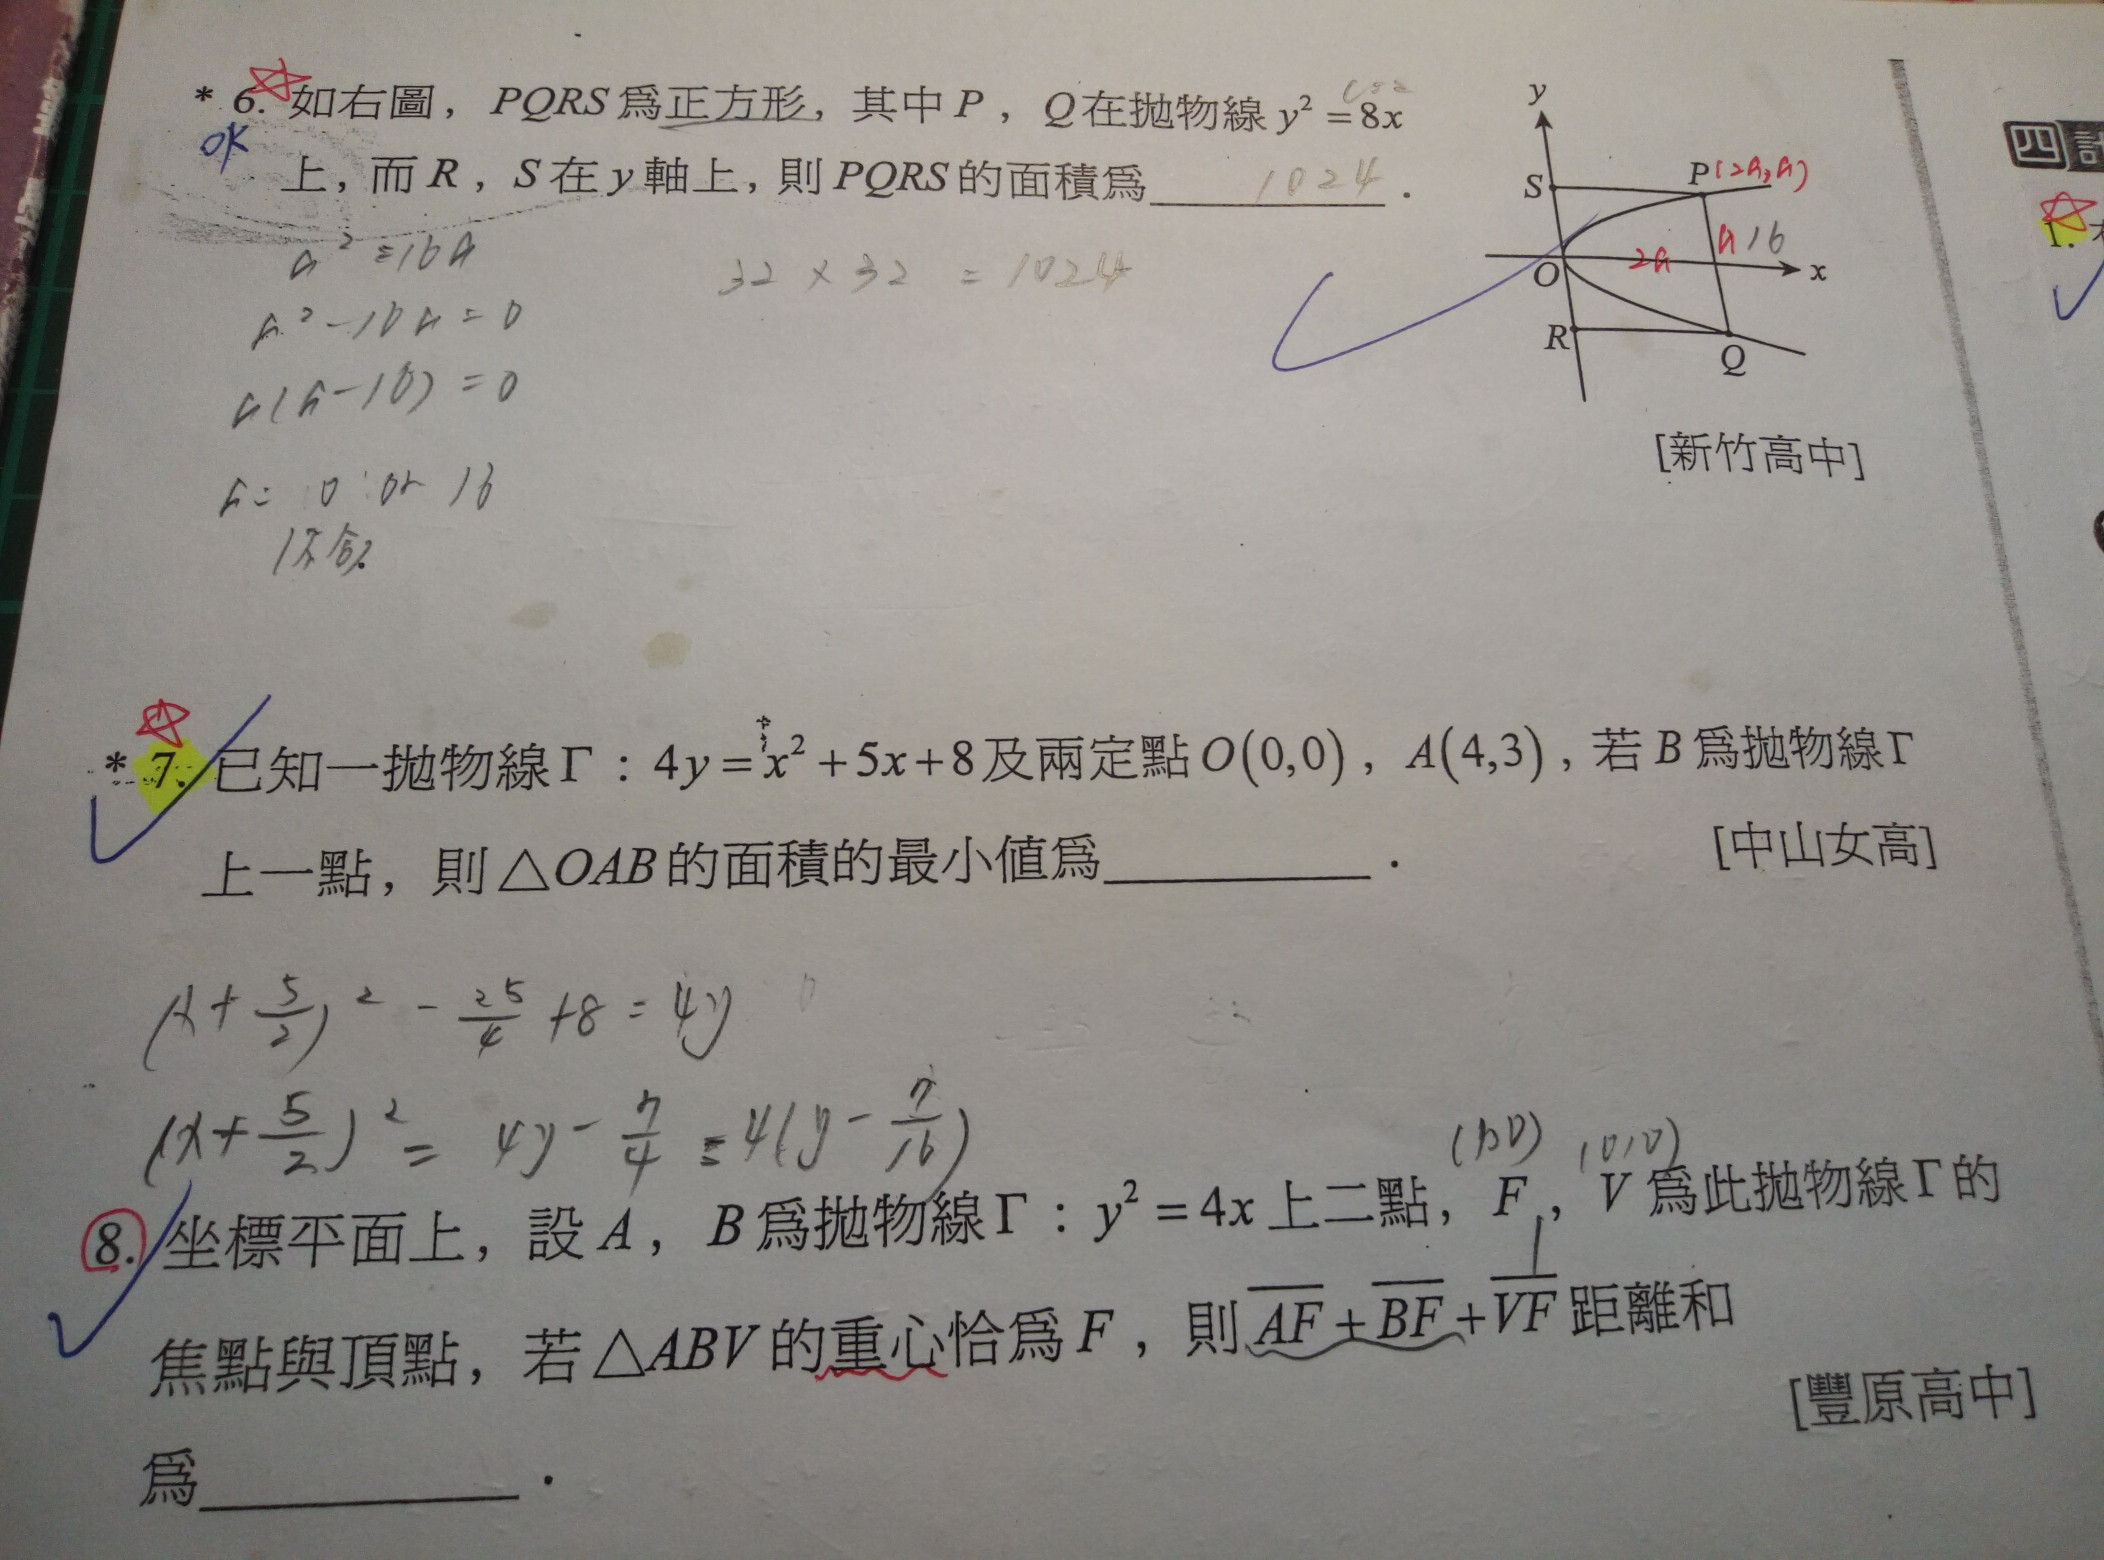 * 6. 如右圖，PQRS為正方形，其中P，Q在拋物線y² = 8x
OK
上，而R，S在y軸上，則PQRS的面積為 1024 .
a² = 16a
a² - 16a = 0
a(a-16) = 0
a = 0 or 16
(不合)
32 × 32 = 1024
y
S
P(2a,a)
a 16
2a
O
x
R
Q
[新竹高中]
四 計
1.
* 7. 已知一拋物線Γ：4y = x² + 5x + 8及兩定點O(0,0)，A(4,3)，若B為拋物線Γ
上一點，則△OAB的面積的最小值為__________.
[中山女高]
(x + 5/2)² - 25/4 + 8 = 4y
(x + 5/2)² = 4y - 7/4 = 4(y - 7/16)
(1,0) (0,0)
8. 坐標平面上，設A，B為拋物線Γ：y² = 4x上二點，F，V為此拋物線Γ的
1
焦點與頂點，若△ABV的重心恰為F，則AF + BF + VF距離和
[豐原高中]
為__________.